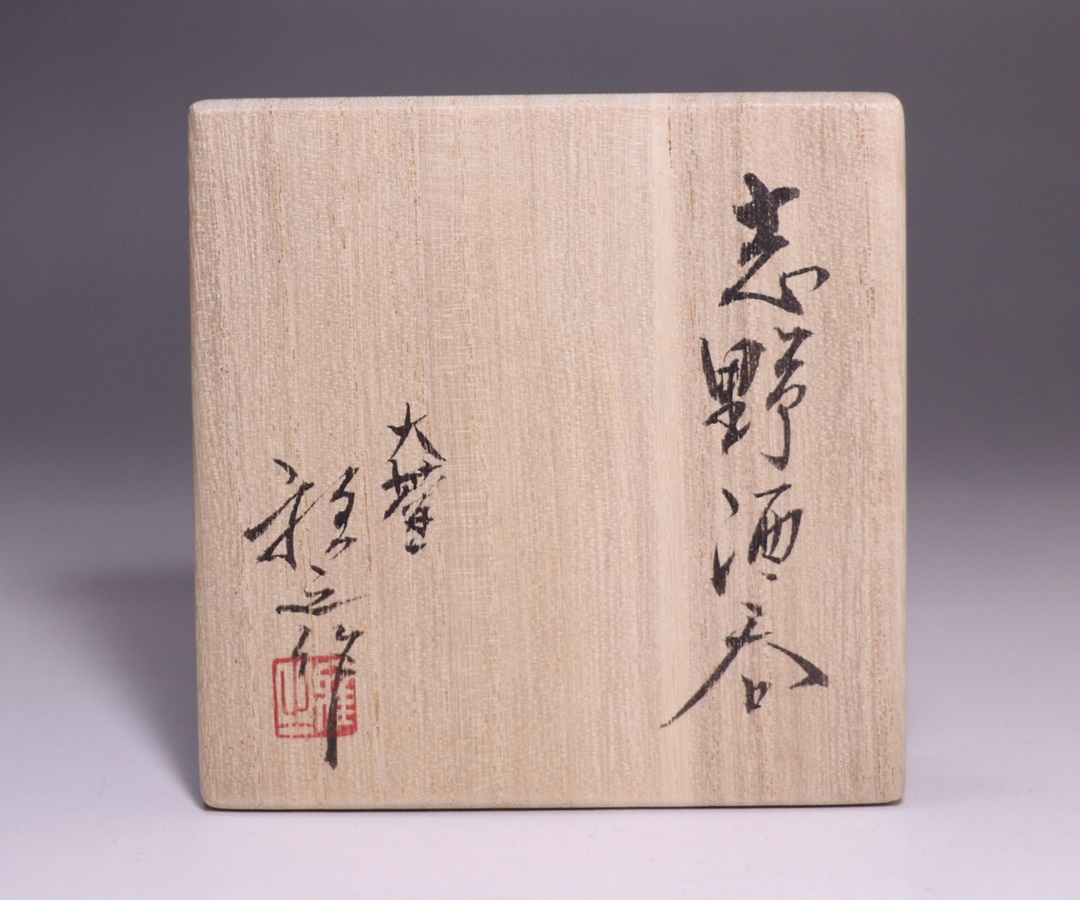 志野酒呑
大萱
雅之作
雅之